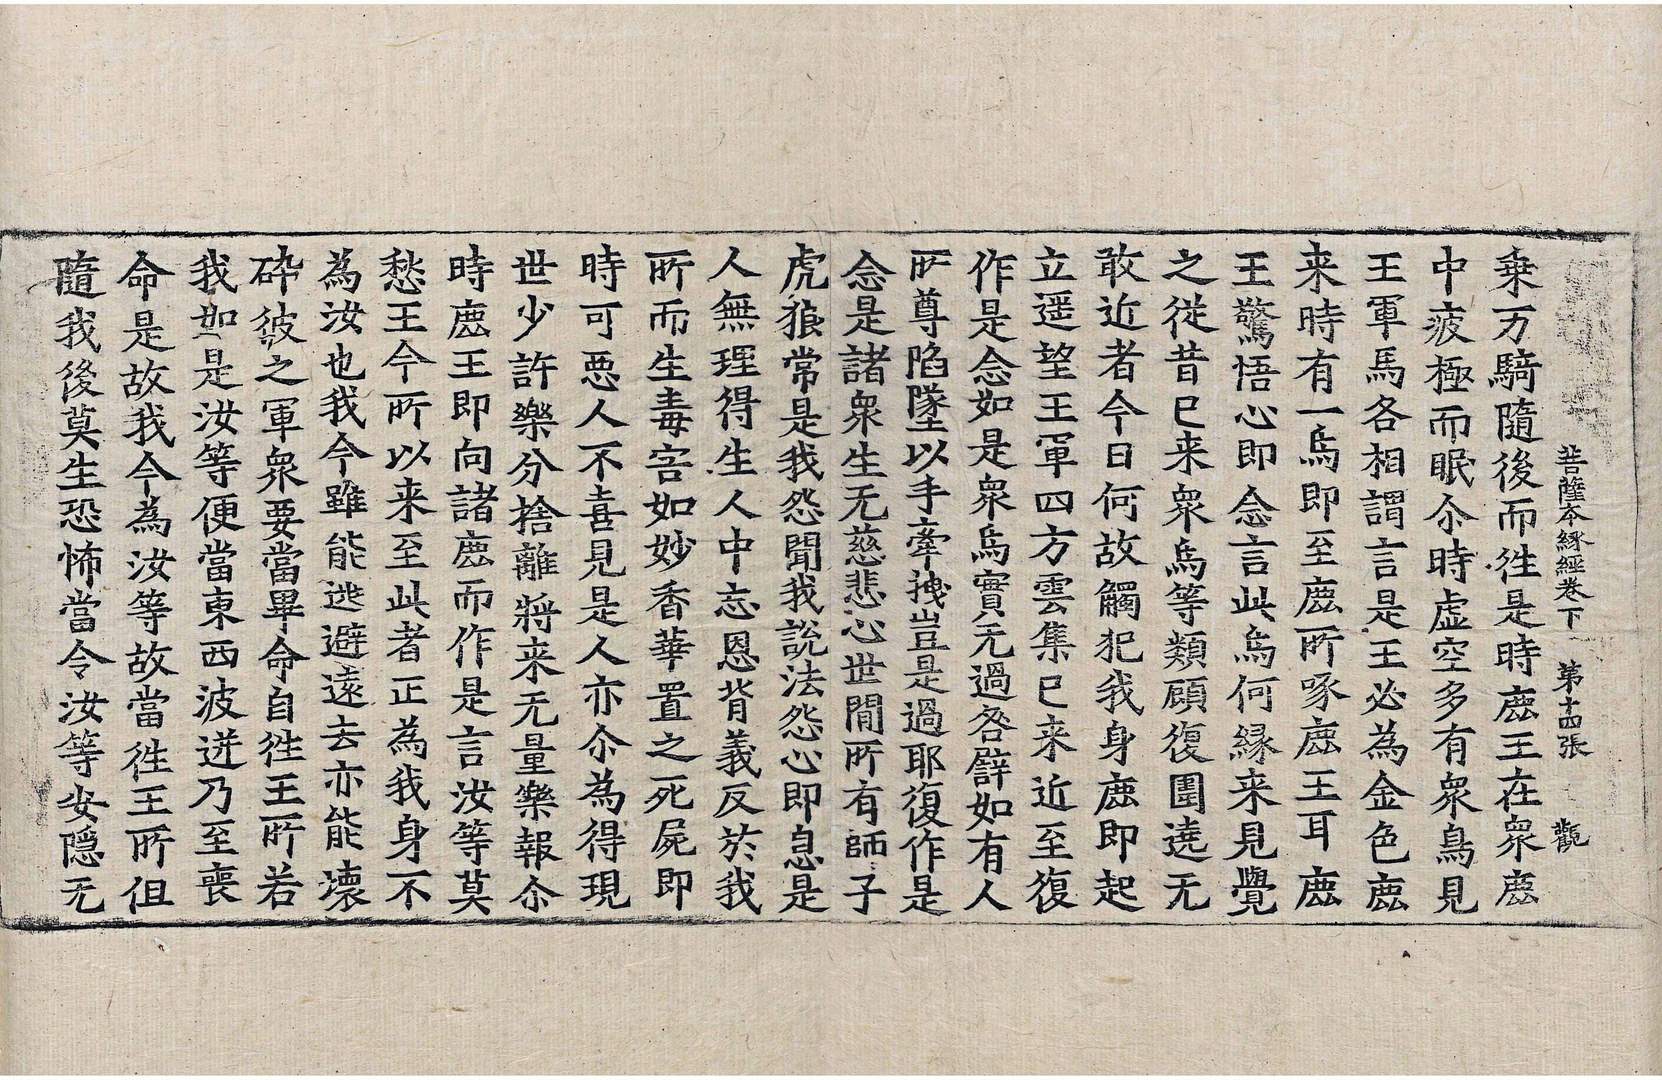 菩薩本緣經卷下　第十四張　觀
乗万騎隨後而往是時鹿王在衆鹿
中疲極而眠尒時虛空多有衆鳥見
王軍馬各相謂言是王必為金色鹿
来時有一烏即至鹿所啄鹿王耳鹿
王驚悟心即念言此烏何緣来見覺
之從昔已来衆烏等類顧復圍遶无
敢近者今日何故觸犯我身鹿即起
立遥望王軍四方雲集已来近至復
作是念如是衆烏實无過咎譬如有人
所尊陷墜以手牽拽豈是過耶復作是
念是諸衆生无慈悲心世間所有師子
虎狼常是我怨聞我說法怨心即息是
人無理得生人中忘恩背義反於我
所而生毒害如妙香華置之死屍即
時可惡人不喜見是人亦尒為得現
世少許樂分捨離將来无量樂報尒
時鹿王即向諸鹿而作是言汝等莫
愁王今所以来至此者正為我身不
為汝也我今雖能逃避遠去亦能壞
碎彼之軍衆要當畢命自往王所若
我如是汝等便當東西波迸乃至喪
命是故我今為汝等故當往王所但
隨我後莫生恐怖當令汝等安隱无